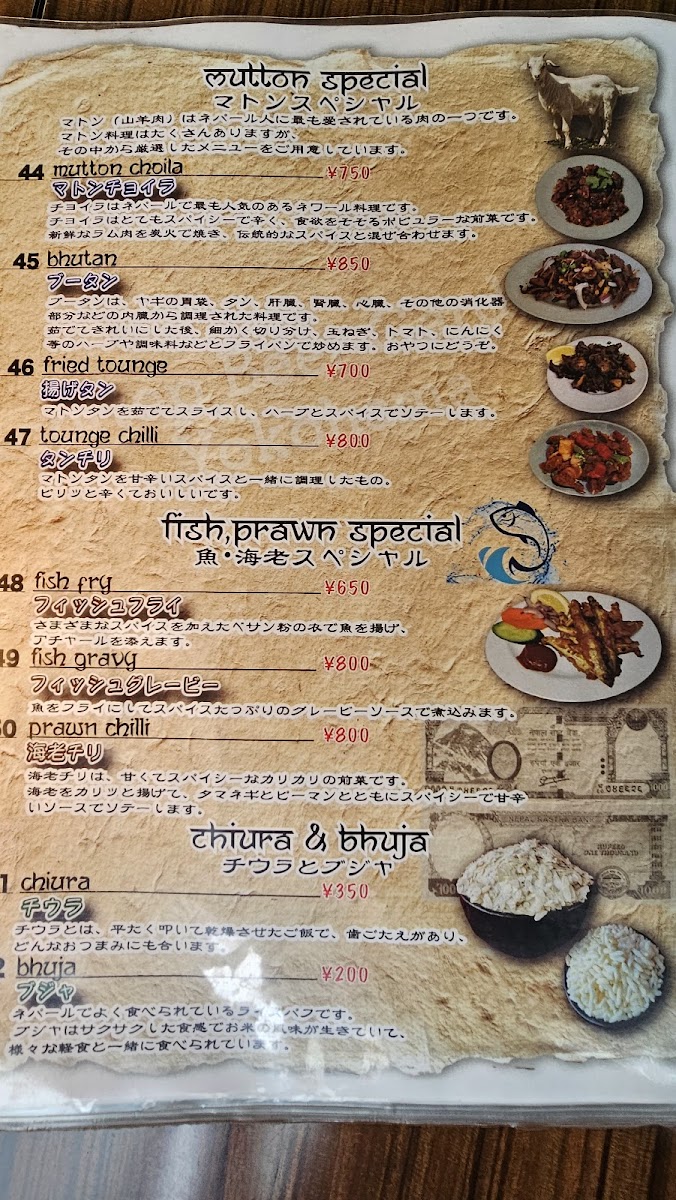 mutton special
マトンスペシャル
マトン（山羊肉）はネパール人に最も愛されている肉の一つです。
マトン料理はたくさんありますが、
その中から厳選したメニューをご用意しています。
44 mutton choila ¥750
マトンチョイラ
チョイラはネパールで最も人気のあるネワール料理です。
チョイラはとてもスパイシーで辛く、食欲をそそるポピュラーな前菜です。
新鮮なラム肉を炭火で焼き、伝統的なスパイスと混ぜ合わせます。
45 bhutan ¥850
ブータン
ブータンは、ヤギの胃袋、タン、肝臓、腎臓、心臓、その他の消化器
部分などの内臓から調理された料理です。
茹でてきれいにした後、細かく切り分け、玉ねぎ、トマト、にんにく
等のハーブや調味料などとフライパンで炒めます。おやつにどうぞ。
46 fried tounge ¥700
揚げタン
マトンタンを茹でてスライスし、ハーブとスパイスでソテーします。
47 tounge chilli ¥800
タンチリ
マトンタンを甘辛いスパイスと一緒に調理したもの。
ピリッと辛くておいしいです。
fish,prawn special
魚・海老スペシャル
48 fish fry ¥650
フィッシュフライ
さまざまなスパイスを加えたベサン粉の衣で魚を揚げ、
アチャールを添えます。
49 fish gravy ¥800
フィッシュグレービー
魚をフライにしてスパイスたっぷりのグレービーソースで煮込みます。
50 prawn chilli ¥800
海老チリ
海老チリは、甘くてスパイシーなカリカリの前菜です。
海老をカリッと揚げて、タマネギとピーマンとともにスパイシーで甘辛
いソースでソテーします。
chiura & bhuja
チウラとブジャ
1 chiura ¥350
チウラ
チウラとは、平たく叩いて乾燥させたご飯で、歯ごたえがあり、
どんなおつまみにも合います。
2 bhuja ¥200
ブジャ
ネパールでよく食べられているライスパフです。
ブジャはサクサクした食感でお米の風味が生きていて、
様々な軽食と一緒に食べられています。